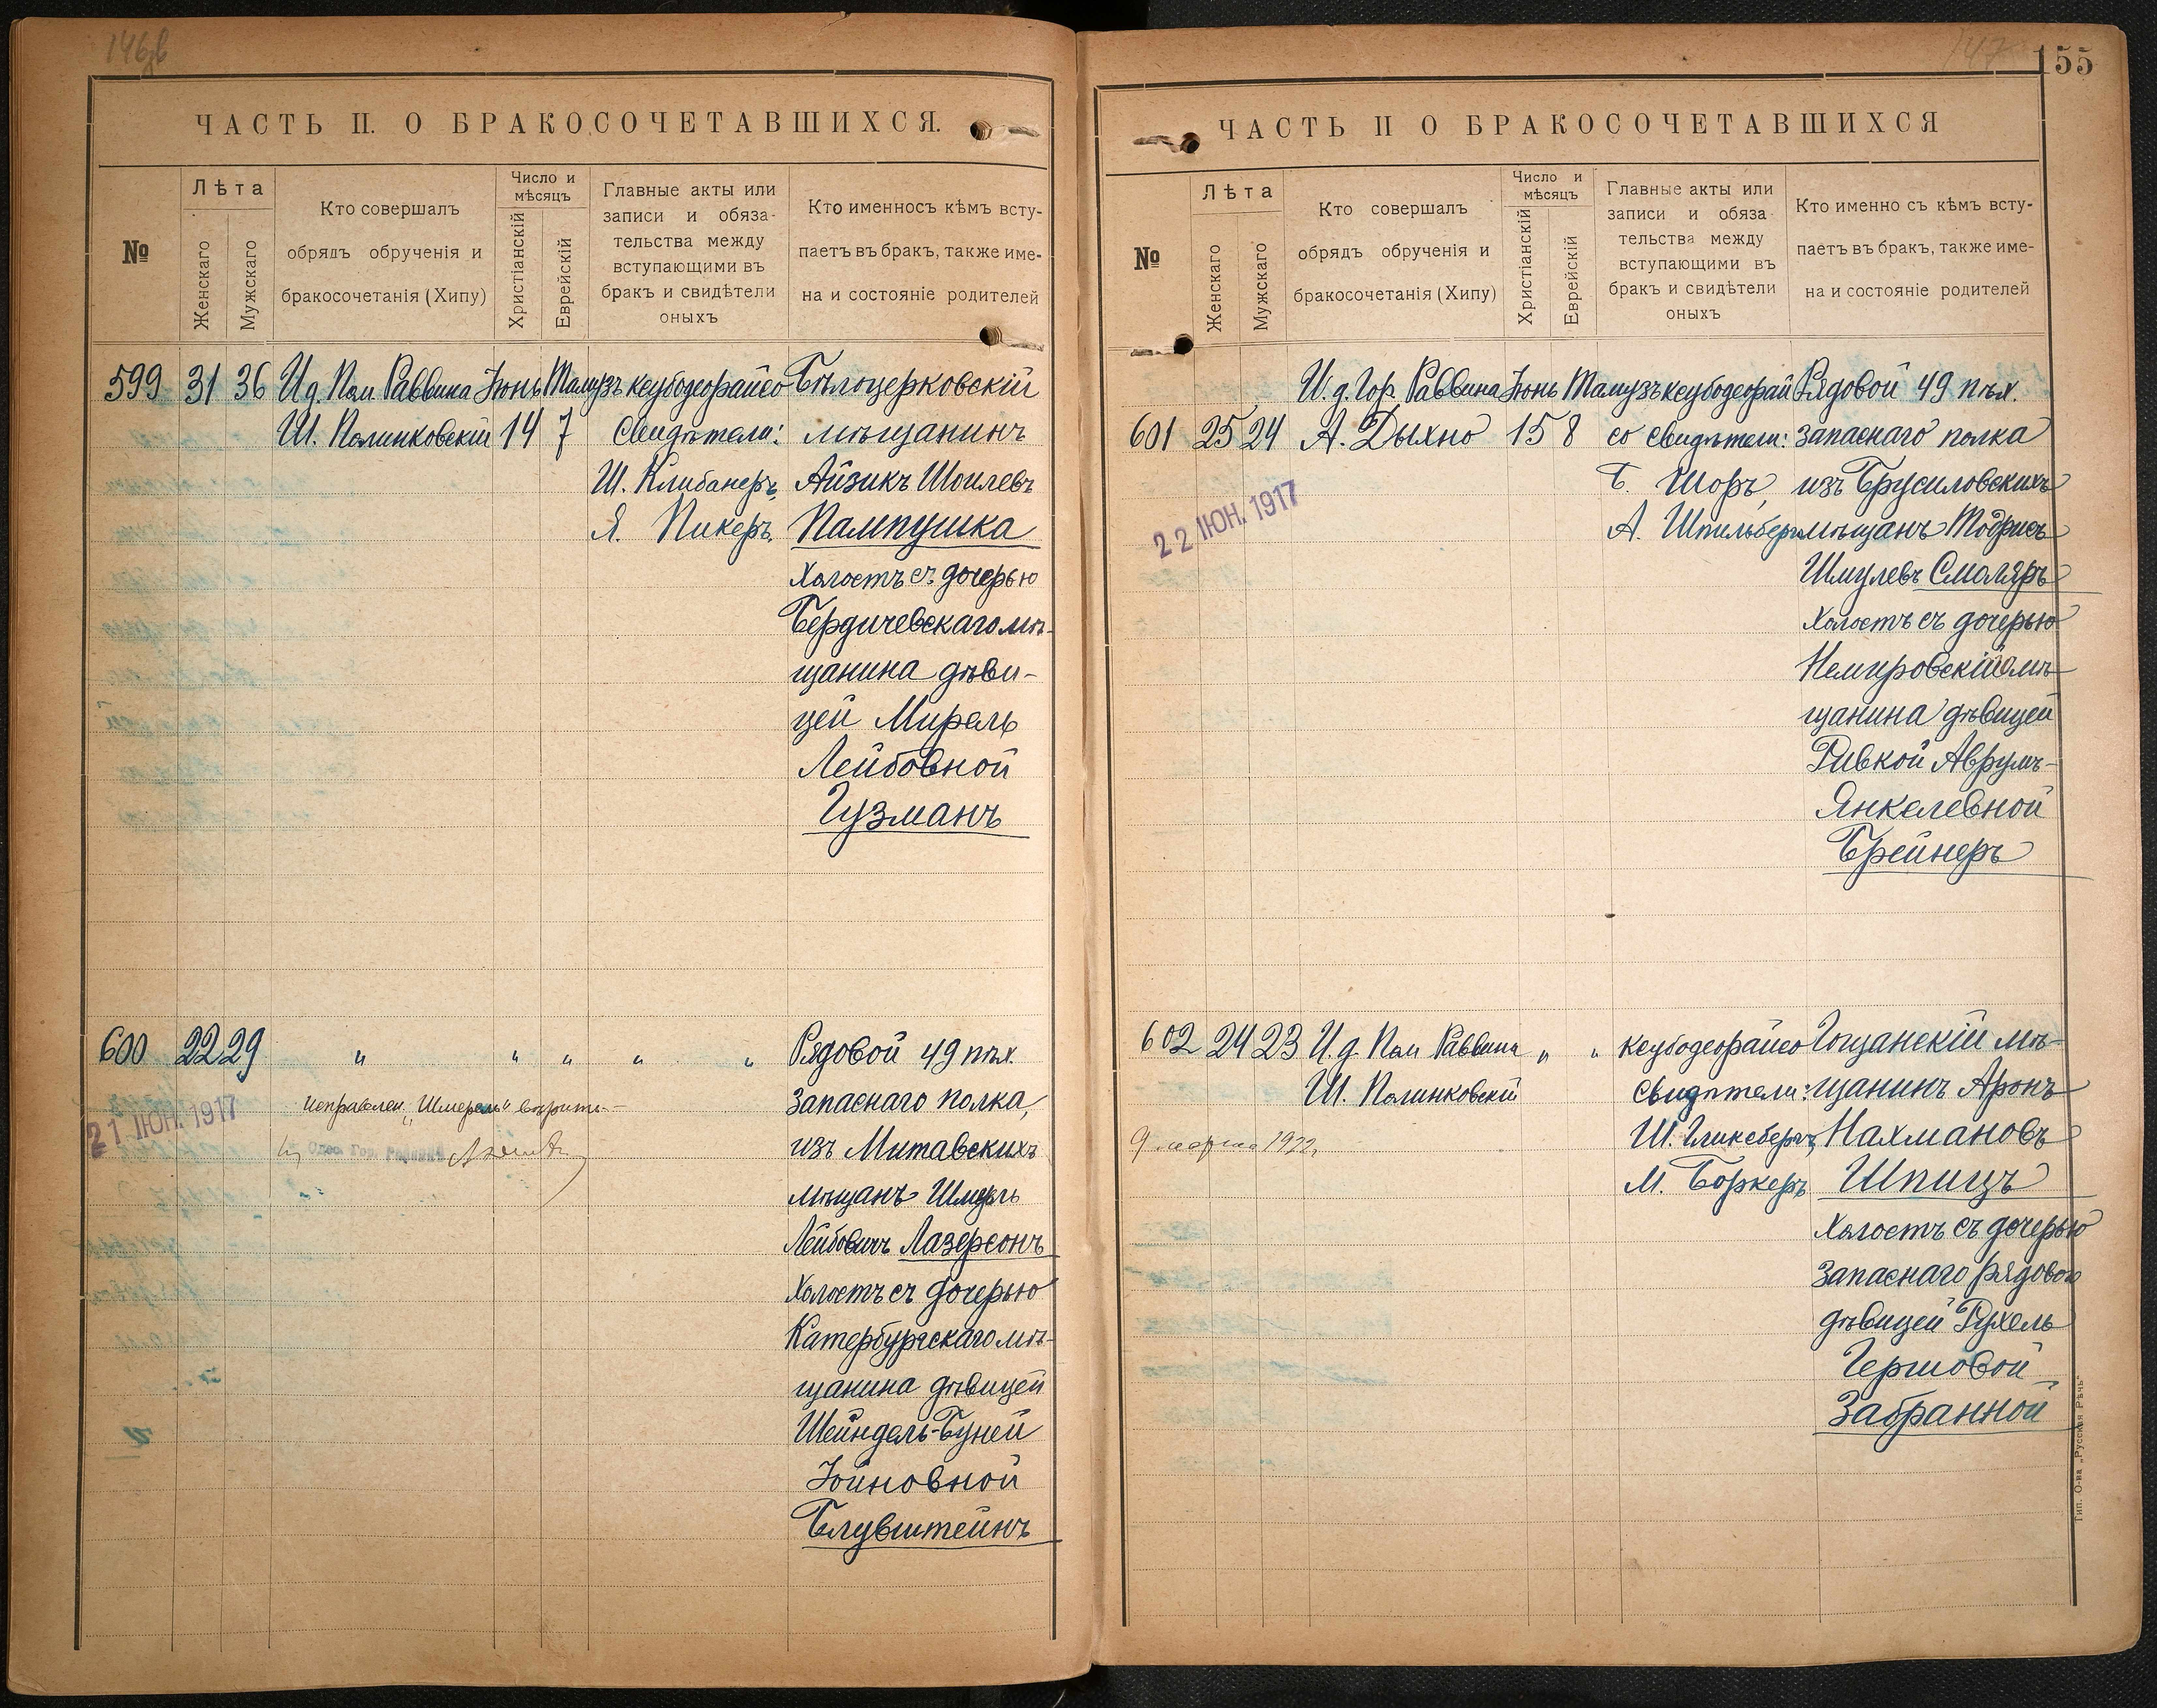 146об
ЧАСТЬ II. О БРАКОСОЧЕТАВШИХСЯ.
№
Лѣта
Женскаго
Мужскаго
Кто совершалъ
обрядъ обрученія и
бракосочетанія (Хипу)
Число и
мѣсяцъ
Христіанскій
Еврейскій
Главные акты или
записи и обяза-
тельства между
вступающими въ
бракъ и свидѣтели
оныхъ
Кто именносъ кѣмъ всту-
паетъ въ бракъ, также име-
на и состояніе родителей
599 31 36 И д. Пом. Раввина Іюнь Тамузъ ксубодеорайсо Бѣлоцерковскій
Ш. Полинковскій 14 7 Свидѣтели: мѣщанинъ
Ш. Клибанеръ, Айзикъ Шоилевъ
Я. Пикеръ. Пампушка
Холостъ съ дочерью
Бердичевскаго мѣ-
щанина дѣви-
цей Мирель
Лейбовной
Гузманъ
600 22 29 " " " " " Рядовой 49 пѣх.
исправлен. „Шмерль"
запаснаго полка,
21 ІЮН. 1917
изъ Митавскихъ
мѣщанъ Шмерль
Лейбовичъ Лазерсонъ
Холостъ съ дочерью
Катербургскаго мѣ-
щанина дѣвицей
Шейндель-Буней
Іойновной
Блувштейнъ
147
155
ЧАСТЬ II О БРАКОСОЧЕТАВШИХСЯ
№
Лѣта
Женскаго
Мужскаго
Кто совершалъ
обрядъ обрученія и
бракосочетанія (Хипу)
Число и
мѣсяцъ
Христіанскій
Еврейскій
Главные акты или
записи и обяза
тельства между
вступающими въ
бракъ и свидѣтели
оныхъ
Кто именно съ кѣмъ всту-
паетъ въ бракъ, также име-
на и состояніе родителей
И. д. Гор. Раввина Іюнь Тамузъ ксубодеорай Рядовой 49 пѣх.
601 25 24 А. Дыхно 15 8 со свидѣтели: запаснаго полка
Б. Шоръ, изъ Брусиловскихъ
22 ІЮН. 1917
А. Шпильберг мѣщанъ Тодрисъ
Шмулевъ Смоляръ
Холостъ съ дочерью
Немировскаго мѣ-
щанина дѣвицей
Ривкой Аврумъ-
Янкелевной
Брейнеръ
602 24 23 И. д. Пом Раввина " " ксубодеорайсо Гощанскій мѣ-
Ш. Полинковскій Свидѣтели: щанинъ Аронъ
9 марта 1922, Ш. Гликсбергъ, Нахмановъ
М. Боркеръ Шпицъ
Холостъ съ дочерью
Запаснаго рядового
дѣвицей Рухель
Гершовой
Забранной
Тип. О-ва „Русская Рѣчь"